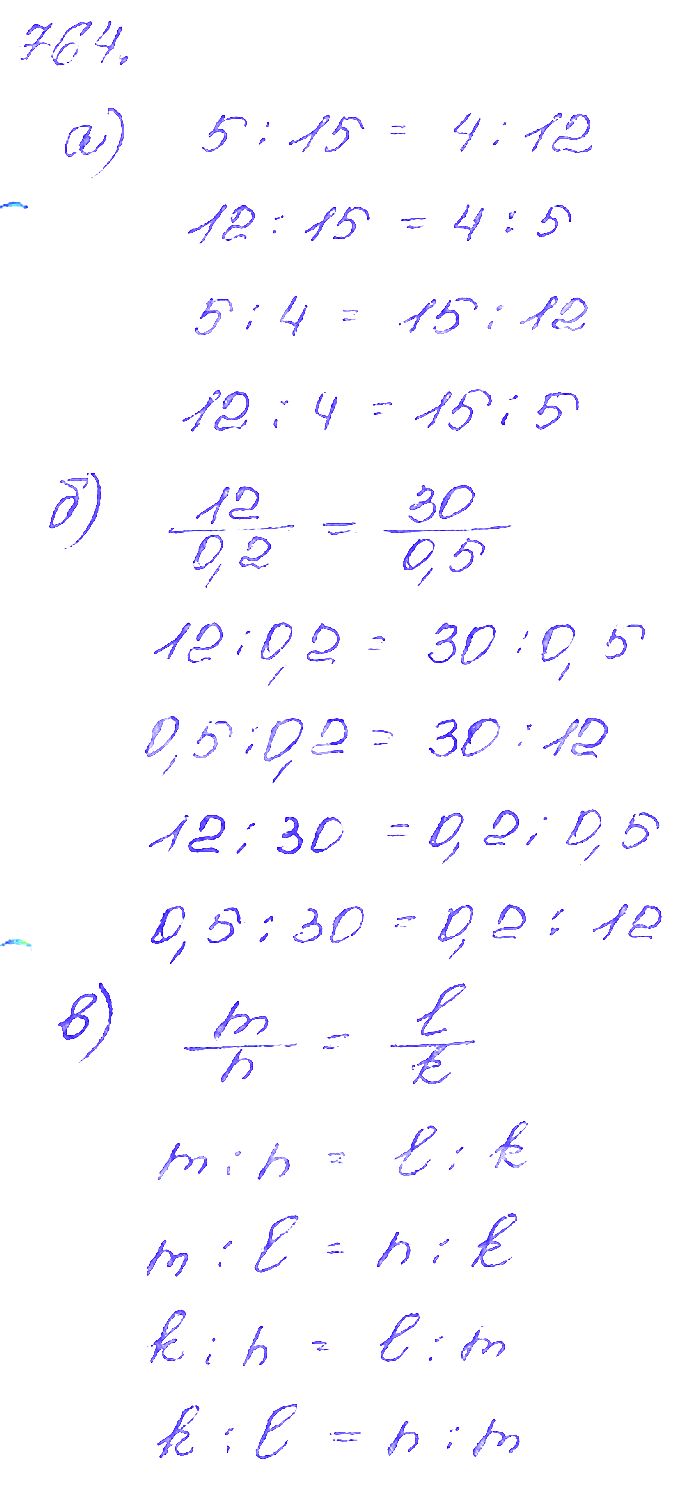 764.
а) 5 : 15 = 4 : 12
12 : 15 = 4 : 5
5 : 4 = 15 : 12
12 : 4 = 15 : 5
б) 12/0,2 = 30/0,5
12 : 0,2 = 30 : 0,5
0,5 : 0,2 = 30 : 12
12 : 30 = 0,2 : 0,5
0,5 : 30 = 0,2 : 12
в) m/n = l/k
m : n = l : k
m : l = n : k
k : n = l : m
k : l = n : m